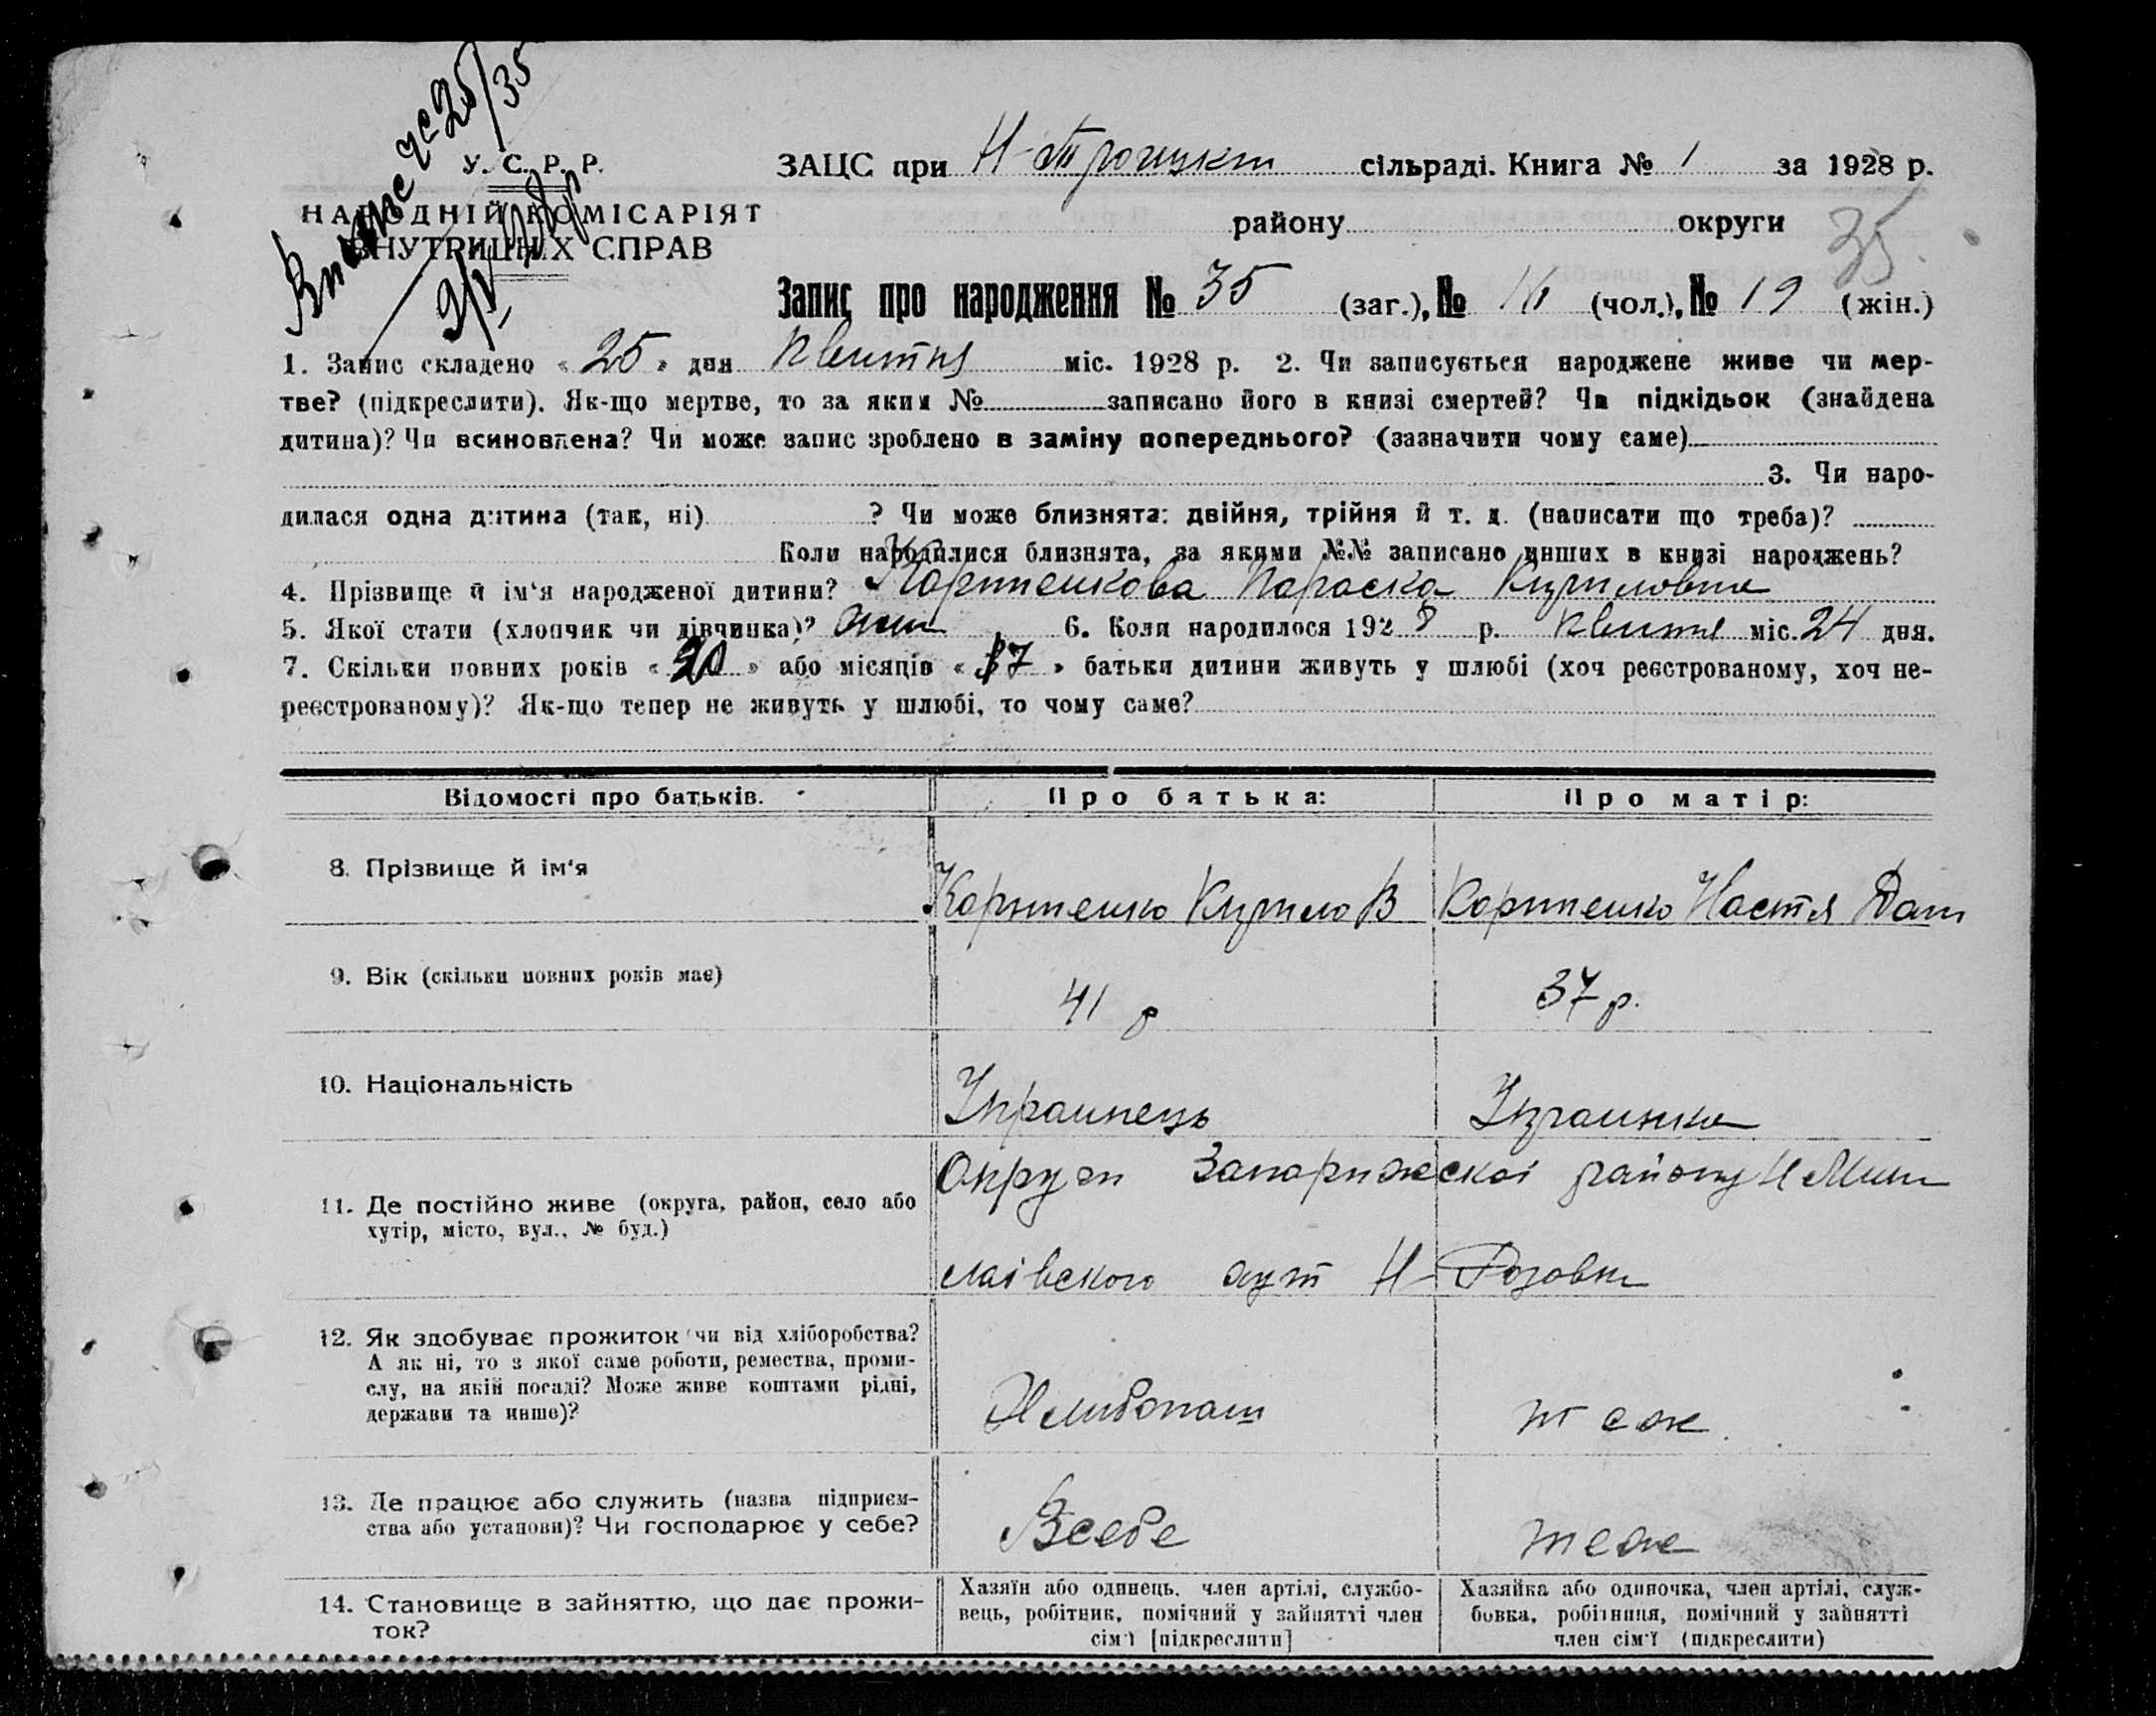 У. С. Р. Р.
НАРОДНІЙ КОМІСАРІЯТ
ВНУТРІШНІХ СПРАВ
25/35
ЗАЦС при Н-Троицкт сільраді. Книга № 1 за 1928 р.
району округи
35
Запис про народження № 35 (заг.), № 16 (чол.), № 19 (жін.)
1. Запис складено « 25 » дня квитня міс. 1928 р. 2. Чи записується народжене живе чи мер-
тве? (підкреслити). Як-що мертве, то за яким № записано його в книзі смертей? Чи підкідьок (знайдена
дитина)? Чи всиновлена? Чи може запис зроблено в заміну попереднього? (зазначити чому саме)
3. Чи наро-
дилася одна дитина (так, ні) ? Чи може близнята: двійня, трійня й т. д. (написати що треба)?
Коли народилися близнята, за якими №№ записано инших в книзі народжень?
4. Прізвище й ім'я народженої дитини? Параска Кириловна
5. Якої стати (хлопчик чи дівчинка)? жин 6. Коли народилося 1928 р. квитня міс. 24 дня.
7. Скільки повних років « 20 » або місяців « 7 » батьки дитини живуть у шлюбі (хоч реєстрованому, хоч не-
реєстрованому)? Як-що тепер не живуть у шлюбі, то чому саме?
Відомості про батьків. Про батька: Про матір:
8. Прізвище й ім'я
Кирило В Настя Дан
9. Вік (скільки повних років має)
41 р 37 р.
10. Національність
Украинець Украинка
11. Де постійно живе (округа, район, село або
хутір, місто, вул., № буд.)
Округи Запарижскоі району Н Мико
лаівского хут Н-Розовки
12. Як здобуває прожиток чи від хліборобства?
А як ні, то з якої саме роботи, ремества, проми-
слу, на якій посаді? Може живе коштами рідні,
держави та инше)?
Хлибопаш теж
13. Де працює або служить (назва підприєм-
ства або установи)? Чи господарює у себе?
Всебе теж
14. Становище в зайняттю, що дає прожи-
ток?
Хазяїн або одинець, член артілі, службо-
вець, робітник, помічний у зайнятті член
сім'ї [підкреслити]
Хазяйка або одиночка, член артілі, служ-
бовка, робітниця, помічний у зайнятті
член сім'ї (підкреслити)